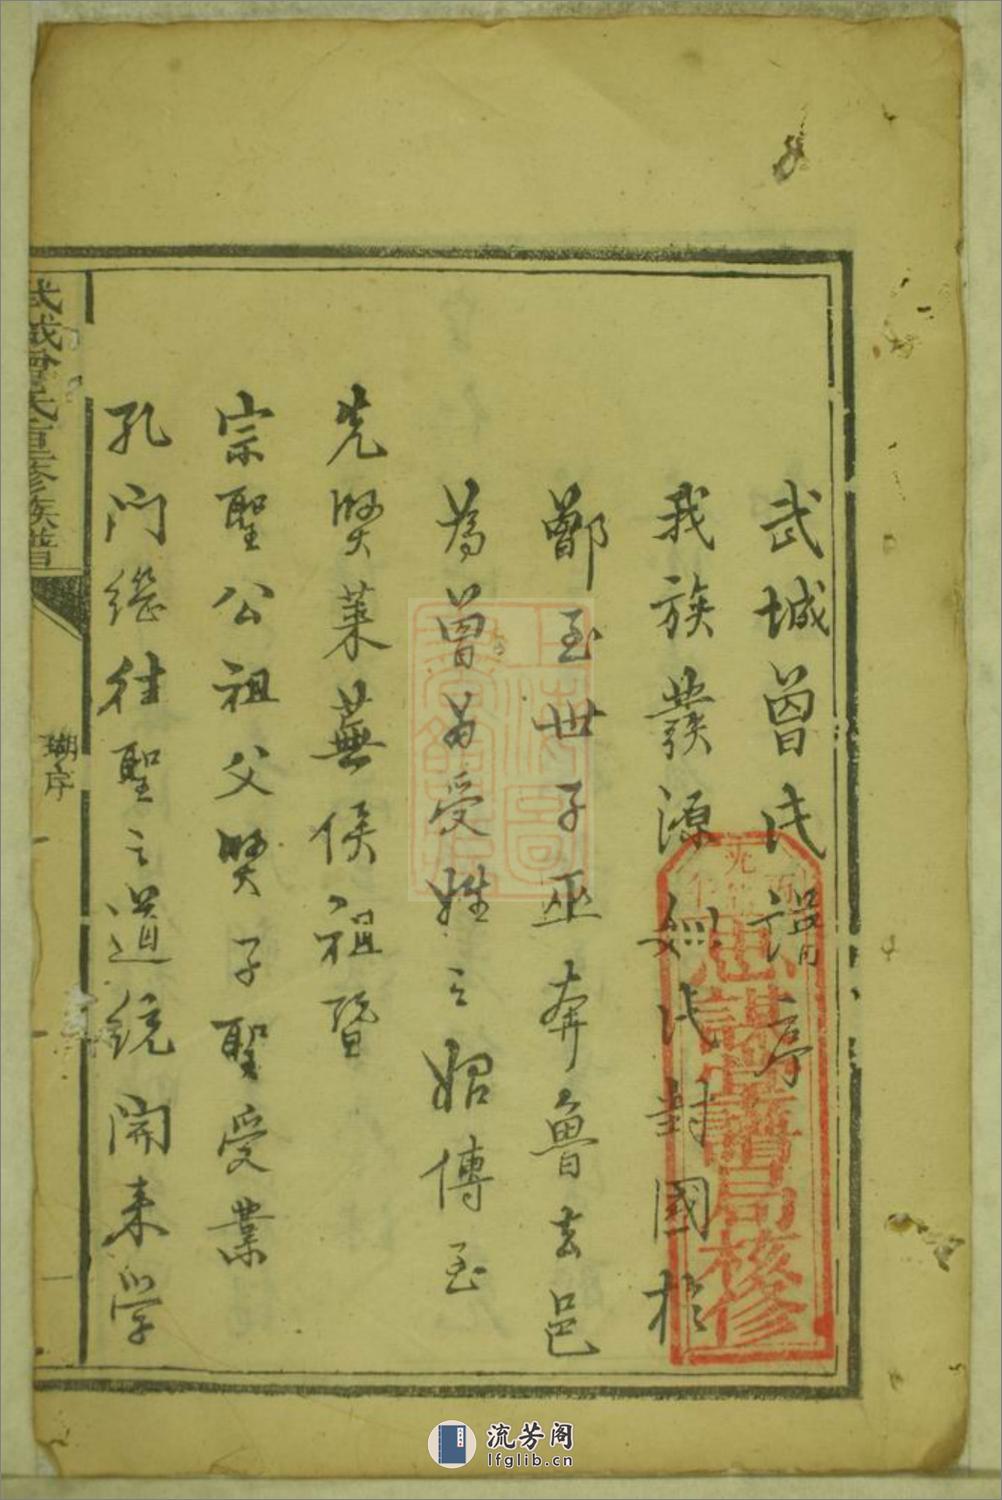 武城曾氏譜序
我族發源𫿞代封國於
鄫至世子巫奔魯去邑
為曾為受姓之始傳至
先賢萊蕪侯祖暨
宗聖公祖父賢子聖受業
孔門繼往聖之道統開來學
武城曾氏重修族譜
瑚序
一
忠謨
譜局
修
流芳阁
lfglib.cn